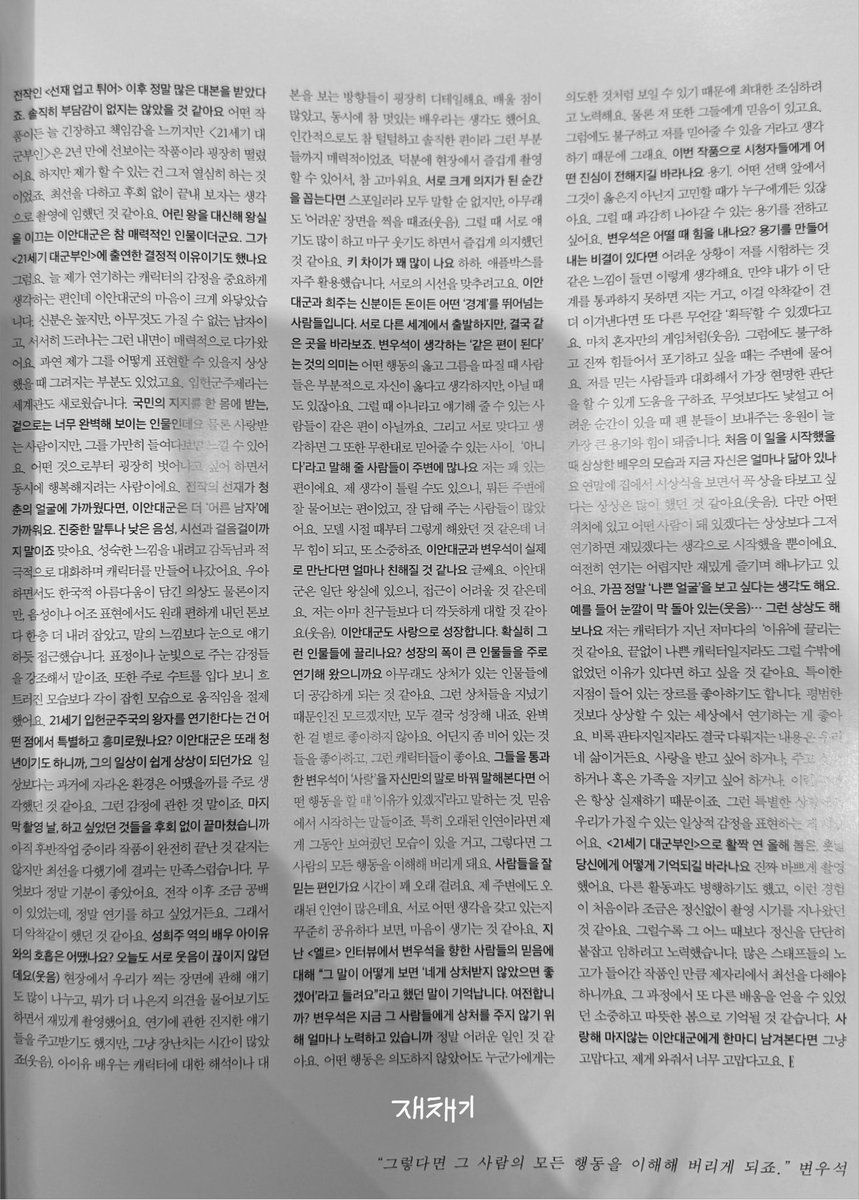 전작인 <선재 업고 튀어> 이후 정말 많은 대본을 받았다
죠. 솔직히 부담감이 없지는 않았을 것 같아요 어떤 작
품이든 늘 긴장하고 책임감을 느끼지만 <21세기 대
군부인>은 2년 만에 선보이는 작품이라 굉장히 떨렸
어요. 하지만 제가 할 수 있는 건 그저 열심히 하는 것
이었죠. 최선을 다하고 후회 없이 끝내 보자는 생각
으로 촬영에 임했던 것 같아요. 어린 왕을 대신해 왕실
을 이끄는 이안대군은 참 매력적인 인물이더군요. 그가
<21세기 대군부인>에 출연한 결정적 이유이기도 했나요
그럼요. 늘 제가 연기하는 캐릭터의 감정을 중요하게
생각하는 편인데 이안대군의 마음이 크게 와닿았습
니다. 신분은 높지만, 아무것도 가질 수 없는 남자이
고, 서서히 드러나는 그런 내면이 매력적으로 다가왔
어요. 과연 제가 그를 어떻게 표현할 수 있을지 상상
했을 때 그려지는 부분도 있었고요. 입헌군주제라는
세계관도 새로웠습니다. 국민의 지지를 한 몸에 받는,
겉으로는 너무 완벽해 보이는 인물인데요 물론 사랑받
는 사람이지만, 그를 가만히 들여다보면 느낄 수 있어
요. 어떤 것으로부터 굉장히 벗어나고 싶어 하면서
동시에 행복해지려는 사람이에요. 전작의 선재가 청
춘의 얼굴에 가까웠다면, 이안대군은 더 ‘어른 남자’에
가까워요. 진중한 말투나 낮은 음성, 시선과 걸음걸이까
지 말이죠 맞아요. 성숙한 느낌을 내려고 감독님과 적
극적으로 대화하며 캐릭터를 만들어 나갔어요. 우아
하면서도 한국적 아름다움이 담긴 의상도 물론이지
만, 음성이나 어조 표현에서도 원래 편하게 내던 톤보
다 한층 더 내려 잡았고, 말의 느낌보다 눈으로 얘기
하듯 접근했습니다. 표정이나 눈빛으로 주는 감정들
을 강조해서 말이죠. 또한 주로 수트를 입다 보니 흐
트러진 모습보다 각이 잡힌 모습으로 움직임을 절제
했어요. 21세기 입헌군주국의 왕자를 연기한다는 건 어
떤 점에서 특별하고 흥미로웠나요? 이안대군은 또래 청
년이기도 하니까, 그의 일상이 쉽게 상상이 되던가요 일
상보다는 과거에 자라온 환경은 어땠을까를 주로 생
각했던 것 같아요. 그런 감정에 관한 것 말이죠. 마지
막 촬영 날, 하고 싶었던 것들을 후회 없이 끝마쳤습니까
아직 후반작업 중이라 작품이 완전히 끝난 것 같지는
않지만 최선을 다했기에 결과는 만족스럽습니다. 무
엇보다 정말 기분이 좋았어요. 전작 이후 조금 공백
이 있었는데, 정말 연기를 하고 싶었거든요. 그래서
더 악착같이 했던 것 같아요. 성희주 역의 배우 아이유
와의 호흡은 어땠나요? 오늘도 서로 웃음이 끊이지 않던
데요(웃음) 현장에서 우리가 찍는 장면에 관해 얘기
도 많이 나누고, 뭐가 더 나은지 의견을 물어보기도
하면서 재밌게 촬영했어요. 연기에 관한 진지한 얘기
들을 주고받기도 했지만, 그냥 장난치는 시간이 많았
죠(웃음). 아이유 배우는 캐릭터에 대한 해석이나 대
본을 보는 방향들이 굉장히 디테일해요. 배울 점이
많았고, 동시에 참 멋있는 배우라는 생각도 했어요.
인간적으로도 참 털털하고 솔직한 편이라 그런 부분
들까지 매력적이었죠. 덕분에 현장에서 즐겁게 촬영
할 수 있어서, 참 고마워요. 서로 크게 의지가 된 순간
을 꼽는다면 스포일러라 모두 말할 순 없지만, 아무래
도 ‘어려운’ 장면을 찍을 때죠(웃음). 그럴 때 서로 얘
기도 많이 하고 마구 웃기도 하면서 즐겁게 의지했던
것 같아요. 키 차이가 꽤 많이 나요 하하. 애플박스를
자주 활용했습니다. 서로의 시선을 맞추려고요. 이안
대군과 희주는 신분이든 돈이든 어떤 ‘경계’를 뛰어넘는
사람들입니다. 서로 다른 세계에서 출발하지만, 결국 같
은 곳을 바라보죠. 변우석이 생각하는 ‘같은 편이 된다’
는 것의 의미는 어떤 행동의 옳고 그름을 따질 때 사람
들은 부분적으로 자신이 옳다고 생각하지만, 아닐 때
도 있잖아요. 그럴 때 아니라고 얘기해 줄 수 있는 사
람들이 같은 편이 아닐까요. 그리고 서로 맞다고 생
각하면 그 또한 무한대로 믿어줄 수 있는 사이. ‘아니
다’라고 말해 줄 사람들이 주변에 많나요 저는 꽤 있는
편이에요. 제 생각이 틀릴 수도 있으니, 뭐든 주변에
잘 물어보는 편이었고, 잘 답해 주는 사람들이 많았
어요. 모델 시절 때부터 그렇게 해왔던 것 같은데 너
무 힘이 되고, 또 소중하죠. 이안대군과 변우석이 실제
로 만난다면 얼마나 친해질 것 같나요 글쎄요. 이안대
군은 일단 왕실에 있으니, 접근이 어려울 것 같은데
요. 저는 아마 친구들보다 더 깍듯하게 대할 것 같아
요(웃음). 이안대군도 사랑으로 성장합니다. 확실히 그
런 인물들에 끌리나요? 성장의 폭이 큰 인물들을 주로
연기해 왔으니까요 아무래도 상처가 있는 인물들에
더 공감하게 되는 것 같아요. 그런 상처들을 지녔기
때문인진 모르겠지만, 모두 결국 성장해 내죠. 완벽
한 걸 별로 좋아하지 않아요. 어딘지 좀 비어 있는 것
들을 좋아하고, 그런 캐릭터들이 좋아요. 그들을 통과
한 변우석이 ‘사랑’을 자신만의 말로 바꿔 말해본다면 어
떤 행동을 할 때 ‘이유가 있겠지’라고 말하는 것. 믿음
에서 시작하는 말들이죠. 특히 오래된 인연이라면 제
게 그동안 보여줬던 모습이 있을 거고요, 그렇다면 그
사람의 모든 행동을 이해해 버리게 돼죠. 사람들을 잘
믿는 편인가요 시간이 꽤 오래 걸려요. 제 주변에도 오
래된 인연이 많은데요. 서로 어떤 생각을 갖고 있는지
꾸준히 공유하다 보면, 마음이 생기는 것 같아요. 지
난 <엘르> 인터뷰에서 변우석을 향한 사람들의 믿음에
대해 “그 말이 어떻게 보면 ‘네게 상처받지 않았으면 좋
겠어’라고 들려요”라고 했던 말이 기억납니다. 여전합니
까? 변우석은 지금 그 사람들에게 상처를 주지 않기 위
해 얼마나 노력하고 있습니까 정말 어려운 일인 것 같
아요. 어떤 행동은 의도하지 않았어도 누군가에게는
의도한 것처럼 보일 수 있기 때문에 최대한 조심하려
고 노력해요. 물론 저 또한 그들에게 믿음이 있고요.
그럼에도 불구하고 저를 믿어줄 수 있을 거라고 생각
하기 때문에 그래요. 이번 작품으로 시청자들에게 어
떤 진심이 전해지길 바라나요 용기. 어떤 선택 앞에서
그것이 옳은지 아닌지 고민할 때가 누구에게든 있잖
아요. 그럴 때 과감히 나아갈 수 있는 용기를 전하고
싶어요. 변우석은 어떨 때 힘을 내나요? 용기를 만들어
내는 비결이 있다면 어려운 상황이 저를 시험하는 것
같은 느낌이 들면 이렇게 생각해요. 만약 내가 이 단
계를 통과하지 못하면 지는 거고, 이걸 악착같이 견
더 이겨낸다면 또 다른 무언갈 ‘획득’할 수 있겠다고
요. 마치 혼자만의 게임처럼(웃음). 그럼에도 불구하
고 진짜 힘들어서 포기하고 싶을 때는 주변에 물어
요. 저를 믿는 사람들과 대화해서 가장 현명한 판단
을 할 수 있게 도움을 구하죠. 무엇보다도 낯설고 어
려운 순간이 있을 때 팬 분들이 보내주는 응원이 늘
가장 큰 용기와 힘이 돼줍니다. 처음 이 일을 시작했을
때 상상한 배우의 모습과 지금 자신은 얼마나 닮아 있나
요 연말에 집에서 시상식을 보면서 꼭 상을 타보고 싶
다는 상상은 많이 했던 것 같아요(웃음). 다만 어떤
위치에 있고 어떤 사람이 돼 있겠다는 상상보다 그저
연기하면 재밌겠다는 생각으로 시작했을 뿐이에요.
여전히 연기는 어렵지만 재미있게 즐기며 해나가고 있
어요. 가끔 정말 ‘나쁜 얼굴’을 보고 싶다는 생각도 해요.
예를 들어 눈깔이 막 돌아 있는(웃음)… 그런 상상도 해
보나요 저는 캐릭터가 지닌 저마다의 ‘이유’에 끌리는
것 같아요. 끝없이 나쁜 캐릭터일지라도 그럴 수밖에
없었던 이유가 있다면 하고 싶을 것 같아요. 특이한
지점이 들어 있는 장르를 좋아하기도 합니다. 평범한
것보다 상상할 수 있는 세상에서 연기하는 게 좋아
요. 비록 판타지일지라도 결국 다뤄지는 내용은 우리
네 삶이거든요. 사랑을 받고 싶어 하거나, 주고
하거나 혹은 가족을 지키고 싶어 하거나. 이런
은 항상 실재하기 때문이죠. 그런 특별한
우리가 가질 수 있는 일상적 감정을 표현하는
어요. <21세기 대군부인>으로 활짝 연 올해 봄은, 훗날
당신에게 어떻게 기억되길 바라나요 진짜 바쁘게 촬영
했어요. 다른 활동과도 병행하기도 했고, 이런 경험
이 처음이라 조금은 정신없이 촬영 시기를 지나왔던
것 같아요. 그럴수록 그 어느 때보다 정신을 단단히
붙잡고 임하려고 노력했습니다. 많은 스태프들의 노
고가 들어간 작품인 만큼 제자리에서 최선을 다해야
하니까요. 그 과정에서 또 다른 배움을 얻을 수 있었
던 소중하고 따뜻한 봄으로 기억될 것 같습니다. 사
랑해 마지않는 이안대군에게 한마디 남겨본다면 그냥
고맙다고, 제게 와줘서 너무 고맙다고요. E
재채기
“그렇다면 그 사람의 모든 행동을 이해해 버리게 되죠.” 변우석